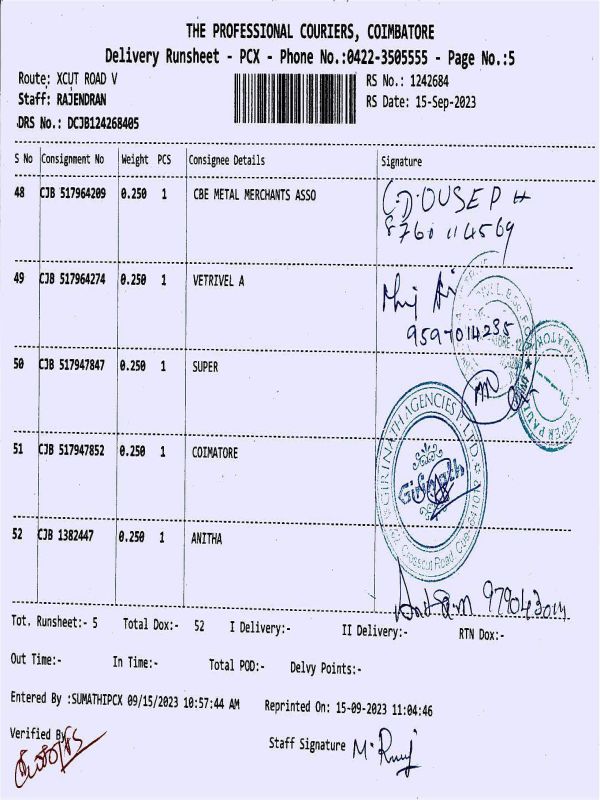 THE PROFESSIONAL COURIERS, COIMBATORE
Delivery Runsheet - PCX - Phone No.:0422-3505555 - Page No.:5
Route: XCUT ROAD V
RS No.: 1242684
Staff: RAJENDRAN
RS Date: 15-Sep-2023
DRS No.: DCJB124268405
S No Consignment No Weight PCS Consignee Details Signature
48 CJB 517964209 0.250 1 CBE METAL MERCHANTS ASSO
OUSEPH
8760114569
49 CJB 517964274 0.250 1 VETRIVEL A
9597014235
50 CJB 517947847 0.250 1 SUPER
51 CJB 517947852 0.250 1 COIMATORE
GIRINATH AGENCIES P LTD
Girinath
Crosscut Road
52 CJB 1382447 0.250 1 ANITHA
Tot. Runsheet:- 5 Total Dox:- 52 I Delivery:- II Delivery:- RTN Dox:-
Out Time:- In Time:- Total POD:- Delvy Points:-
Entered By :SUMATHIPCX 09/15/2023 10:57:44 AM Reprinted On: 15-09-2023 11:04:46
Verified By
Staff Signature